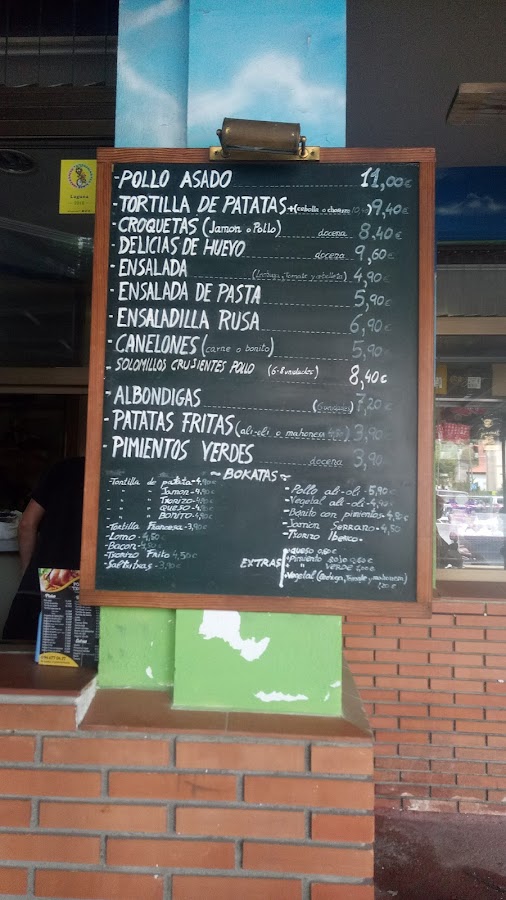 -POLLO ASADO 11,00€
-TORTILLA DE PATATAS +(cebolla o chorizo) 9,40€
-CROQUETAS (Jamon o Pollo) docena 8,40€
-DELICIAS DE HUEVO docena 9,60€
-ENSALADA (Lechuga, Tomate y cebolleta) 4,90€
-ENSALADA DE PASTA 5,90€
-ENSALADILLA RUSA 6,90€
-CANELONES (carne o bonito) 5,90€
-SOLOMILLOS CRUJIENTES POLLO (6-8 unidades) 8,40€
-ALBONDIGAS 7,20€
-PATATAS FRITAS (ali-oli o mahonesa) 3,90€
-PIMIENTOS VERDES docena 3,90
~ BOKATAS ~
-Tortilla de patata-4,90€
" " Jamon-4,90€
" " Txorizo-4,90€
" " QUESO-4,90€
" " BONITO-4,90€
-Tortilla Francesa-3,90€
-Lomo-4,50€
-Bacon-4,50€
-Txorizo Frito 4,50€
-Saltxitxas-3,90€
-Pollo ali-oli-5,90€
-Vegetal ali-oli-4,90€
-Bonito con pimientos-4,90€
-Jamon Serrano-4,50
-Txorizo Iberico-
EXTRAS
-QUESO 0,60€
-Pimiento ROJO 0,60€
" " VERDE 1,00€
-Vegetal (lechuga, Tomate y mahonesa)
Laguna